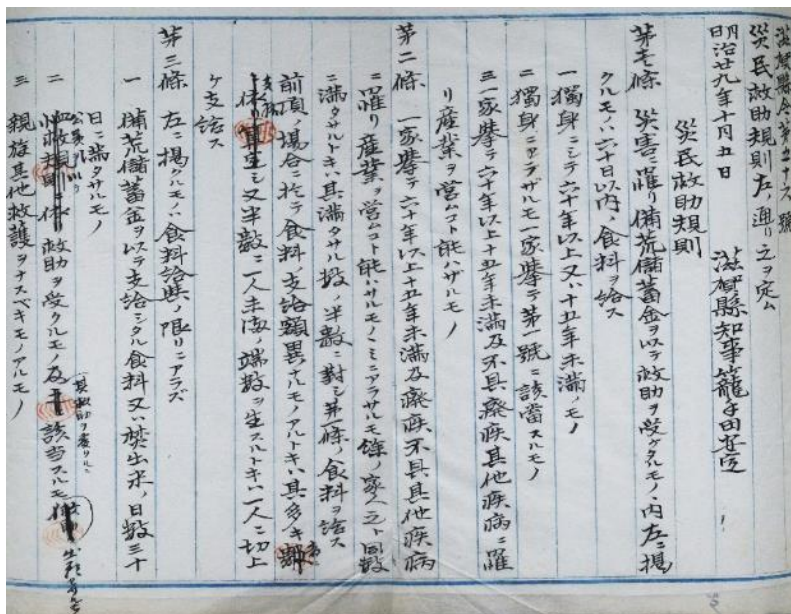 滋賀縣令第五十八號
災民救助規則左ノ通リ之ヲ定ム
明治廿九年十月五日 滋賀縣知事籠手田安定
災民救助規則
第壱條 災害ニ罹リ備荒儲蓄金ヲ以テ救助ヲ受ケタルモノヽ内左ニ掲
クルモノハ六十日以内ノ食料ヲ給ス
一 獨身ニシテ六十年以上又ハ十五年未満ノモノ
二 獨身ニアラザルモ一家擧テ第一號ニ該當スルモノ
三 一家擧テ六十年以上十五年未満及不具癈疾其他疾病ニ罹
リ産業ヲ営ムコト能ハザルモノ
第二條 一家擧テ六十年以上十五年未満及癈疾不具其他疾病
ニ罹リ産業ヲ営ムコト能ハサルモノノミニアラサルモ餘ノ家人之ト同数
ニ満タサルトキハ其満タサル数ノ半数ニ對シ第一條ノ食料ヲ給ス
前項ノ場合ニ於テ食料ノ支給額異ナルモノアルトキハ其多キ
シ又半数ニ一人未満ノ端数ヲ生スルトキハ一人ニ切上
ケ支給ス
第三條 左ニ掲クルモノハ食料給與ノ限リニアラズ
一 備荒儲蓄金ヲ以テ支給シタル食料又ハ焚出米ノ日数三十
日ニ満タサルモノ
二 救助ヲ受クルモノ 該当スルモ
三 親族其他救護ヲナスベキモノアルモノ